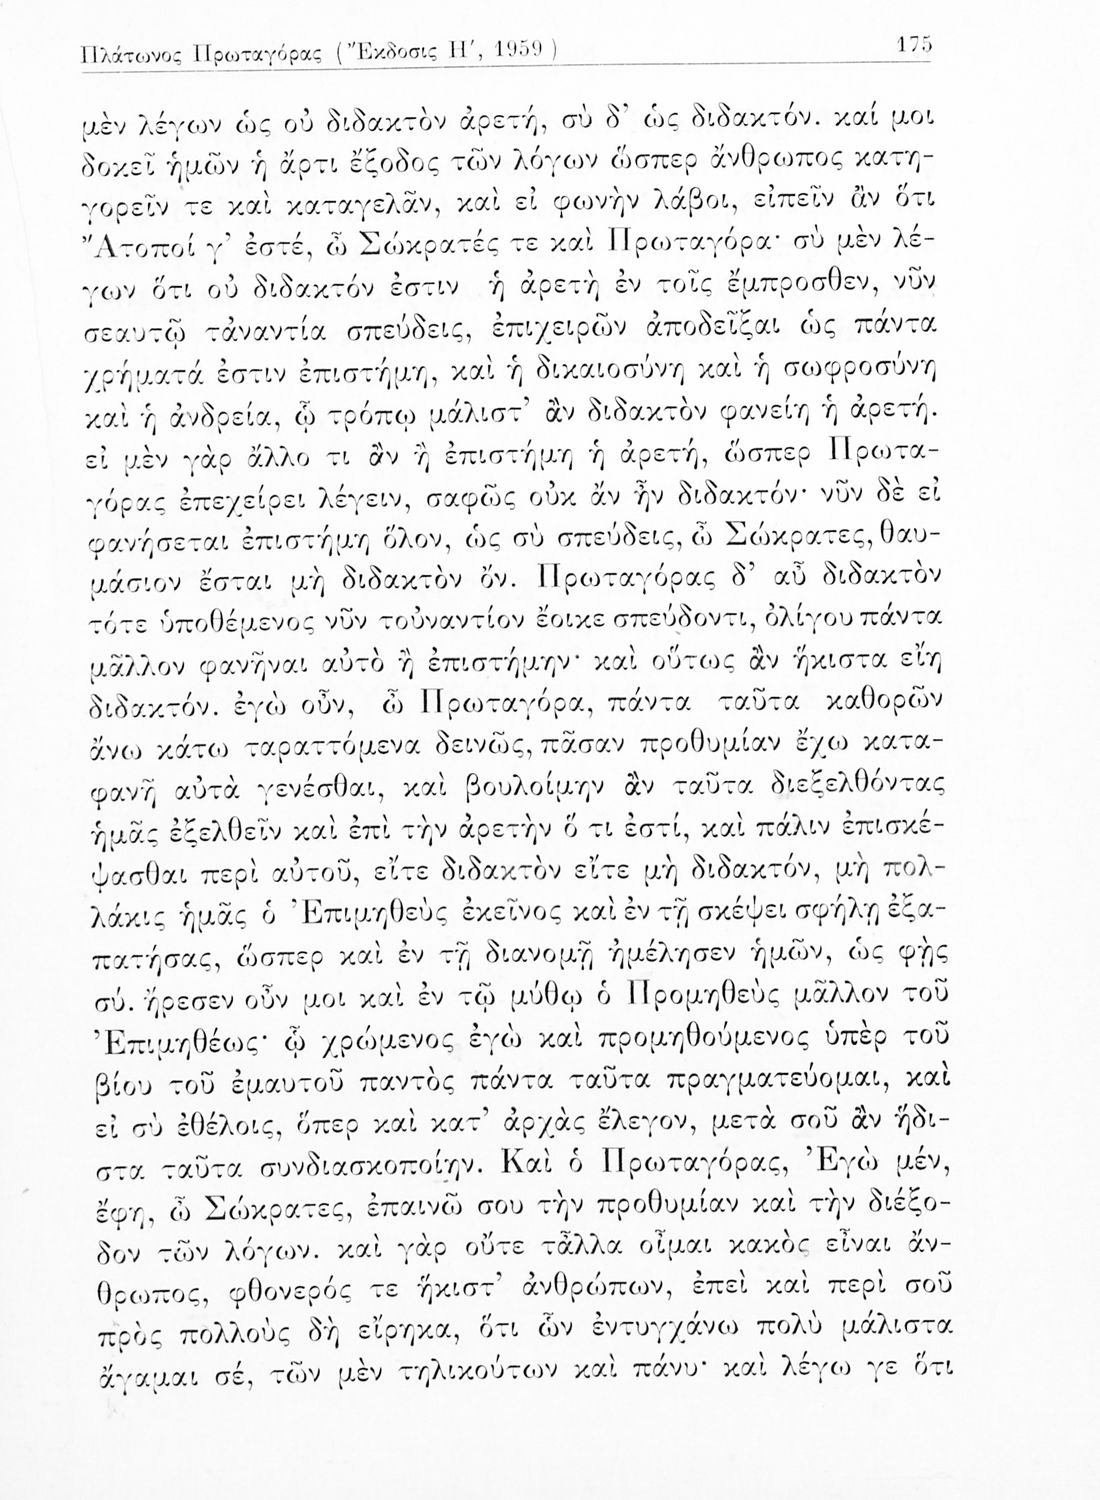 Πλάτωνος Πρωταγόρας ( Ἔκδοσις Η΄, 1959 ) 175
μὲν λέγων ὡς οὐ διδακτὸν ἀρετή, σὺ δ’ ὡς διδακτόν. καί μοι
δοκεῖ ἡμῶν ἡ ἄρτι ἔξοδος τῶν λόγων ὥσπερ ἄνθρωπος κατη-
γορεῖν τε καὶ καταγελᾶν, καὶ εἰ φωνὴν λάβοι, εἰπεῖν ἂν ὅτι
"Ἄτοποί γ’ ἐστέ, ὦ Σώκρατές τε καὶ Πρωταγόρα· σὺ μὲν λέ-
γων ὅτι οὐ διδακτόν ἐστιν ἡ ἀρετὴ ἐν τοῖς ἔμπροσθεν, νῦν
σεαυτῷ τἀναντία σπεύδεις, ἐπιχειρῶν ἀποδεῖξαι ὡς πάντα
χρήματά ἐστιν ἐπιστήμη, καὶ ἡ δικαιοσύνη καὶ ἡ σωφροσύνη
καὶ ἡ ἀνδρεία, ᾧ τρόπῳ μάλιστ’ ἂν διδακτὸν φανείη ἡ ἀρετή.
εἰ μὲν γὰρ ἄλλο τι ἂν ἢ ἐπιστήμη ἡ ἀρετή, ὥσπερ Πρωτα-
γόρας ἐπεχείρει λέγειν, σαφῶς οὐκ ἄν ἦν διδακτόν· νῦν δὲ εἰ
φανήσεται ἐπιστήμη ὅλον, ὡς σὺ σπεύδεις, ὦ Σώκρατες, θαυ-
μάσιον ἔσται μὴ διδακτὸν ὄν. Πρωταγόρας δ’ αὖ διδακτὸν
τότε ὑποθέμενος νῦν τοὐναντίον ἔοικε σπεύδοντι, ὀλίγου πάντα
μᾶλλον φανῆναι αὐτὸ ἢ ἐπιστήμην· καὶ οὕτως ἂν ἥκιστα εἴη
διδακτόν. ἐγὼ οὖν, ὦ Πρωταγόρα, πάντα ταῦτα καθορῶν
ἄνω κάτω ταραττόμενα δεινῶς, πᾶσαν προθυμίαν ἔχω κατα-
φανῆ αὐτὰ γενέσθαι, καὶ βουλοίμην ἂν ταῦτα διεξελθόντας
ἡμᾶς ἐξελθεῖν καὶ ἐπὶ τὴν ἀρετὴν ὅ τι ἐστί, καὶ πάλιν ἐπισκέ-
ψασθαι περὶ αὐτοῦ, εἴτε διδακτὸν εἴτε μὴ διδακτόν, μὴ πολ-
λάκις ἡμᾶς ὁ Ἐπιμηθεὺς ἐκεῖνος καὶ ἐν τῇ σκέψει σφήλῃ ἐξα-
πατήσας, ὥσπερ καὶ ἐν τῇ διανομῇ ἠμέλησεν ἡμῶν, ὡς φῂς
σύ. ἤρεσεν οὖν μοι καὶ ἐν τῷ μύθῳ ὁ Προμηθεὺς μᾶλλον τοῦ
Ἐπιμηθέως· ᾧ χρώμενος ἐγὼ καὶ προμηθούμενος ὑπὲρ τοῦ
βίου τοῦ ἐμαυτοῦ παντὸς πάντα ταῦτα πραγματεύομαι, καὶ
εἰ σὺ ἐθέλοις, ὅπερ καὶ κατ’ ἀρχὰς ἔλεγον, μετὰ σοῦ ἂν ἥδι-
στα ταῦτα συνδιασκοποίην. Καὶ ὁ Πρωταγόρας, Ἐγὼ μέν,
ἔφη, ὦ Σώκρατες, ἐπαινῶ σου τὴν προθυμίαν καὶ τὴν διέξο-
δον τῶν λόγων. καὶ γὰρ οὔτε τἆλλα οἶμαι κακὸς εἶναι ἄν-
θρωπος, φθονερός τε ἥκιστ’ ἀνθρώπων, ἐπεὶ καὶ περὶ σοῦ
πρὸς πολλοὺς δὴ εἴρηκα, ὅτι ὧν ἐντυγχάνω πολὺ μάλιστα
ἄγαμαι σέ, τῶν μὲν τηλικούτων καὶ πάνυ· καὶ λέγω γε ὅτι